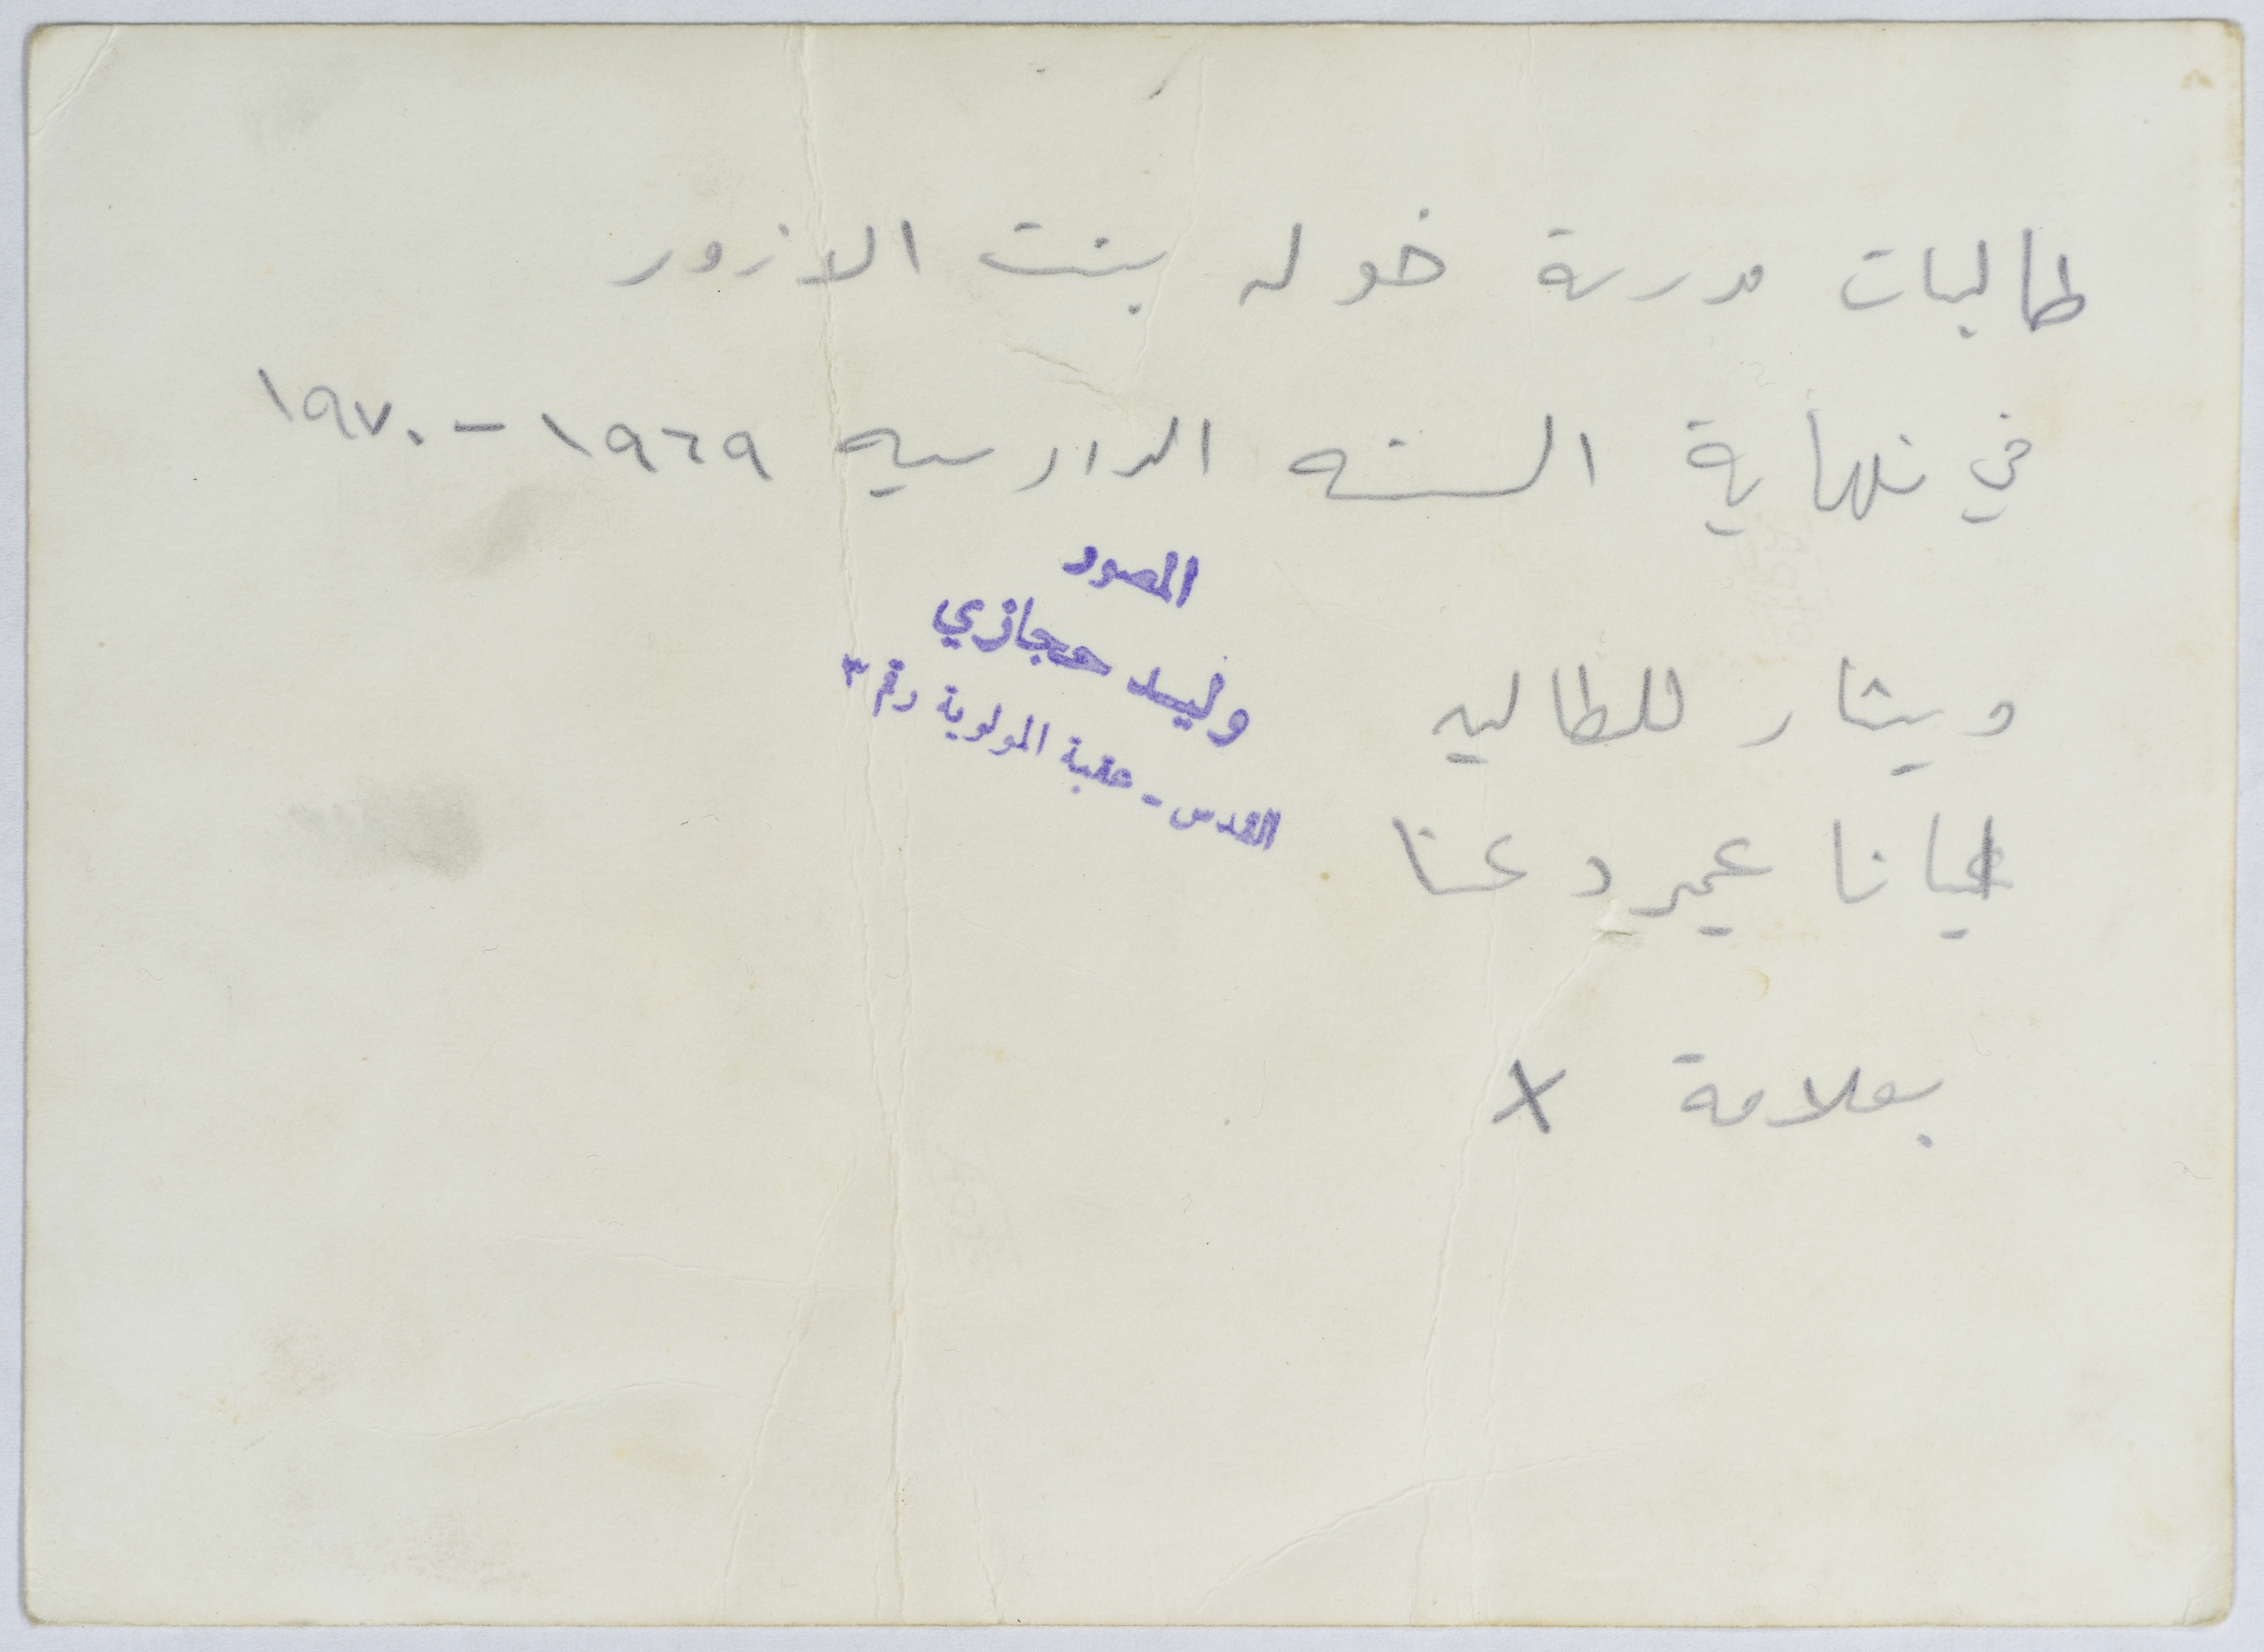 طالبات مدرسة خوله بنت الازور
في نهاية السنه الدارسيه ١٩٦٩ - ١٩٧٠
المصور
وليد حجازي
القدس - عقبة المولوية رقم ٣
ويشار للطالبه
دعنا
بعلامة X